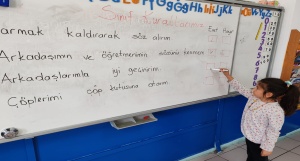 Gg Ğğ Hh Iı İi Jj Kk
Sınıf Kurallarımız
armak kaldırarak söz alırım. Evet Hayır
Arkadaşımın ve öğretmenimin sözünü kesmem
Arkadaşlarımla iyi geçinirim.
Çöplerimi çöp kutusuna atarım